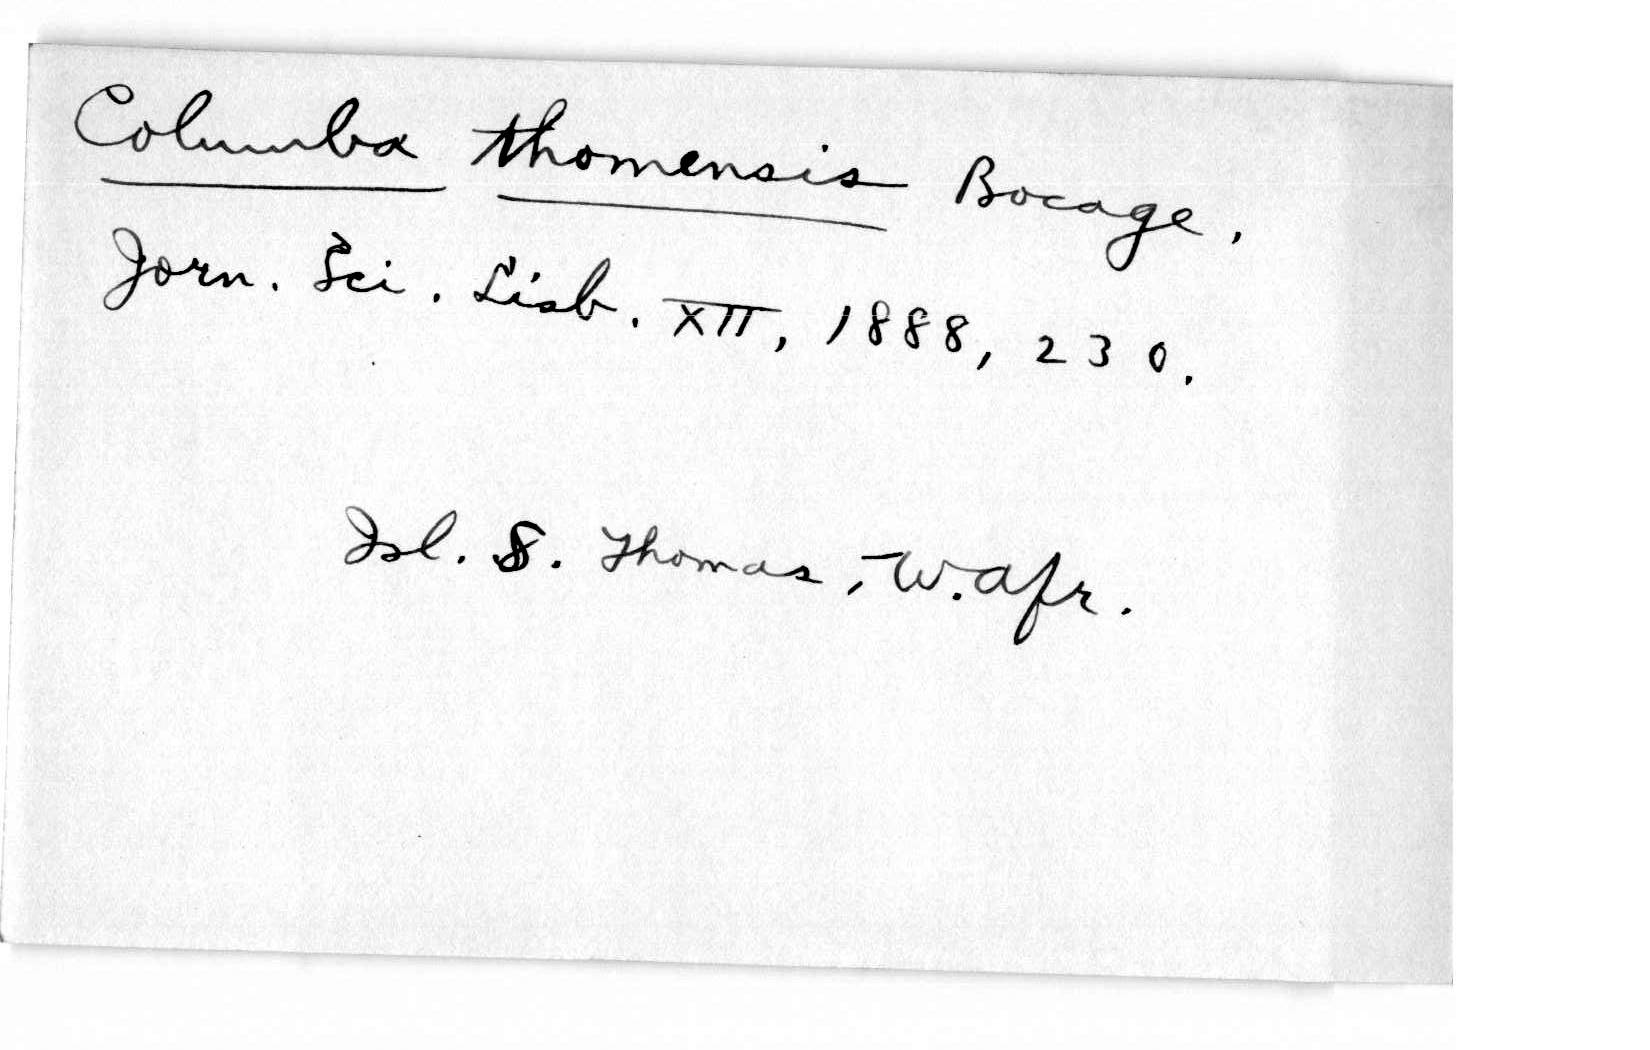 Columba thomensis Bocage,
Jorn. Sci. Lisb. XII, 1888, 230.
Isl. S. Thomas, W. Afr.